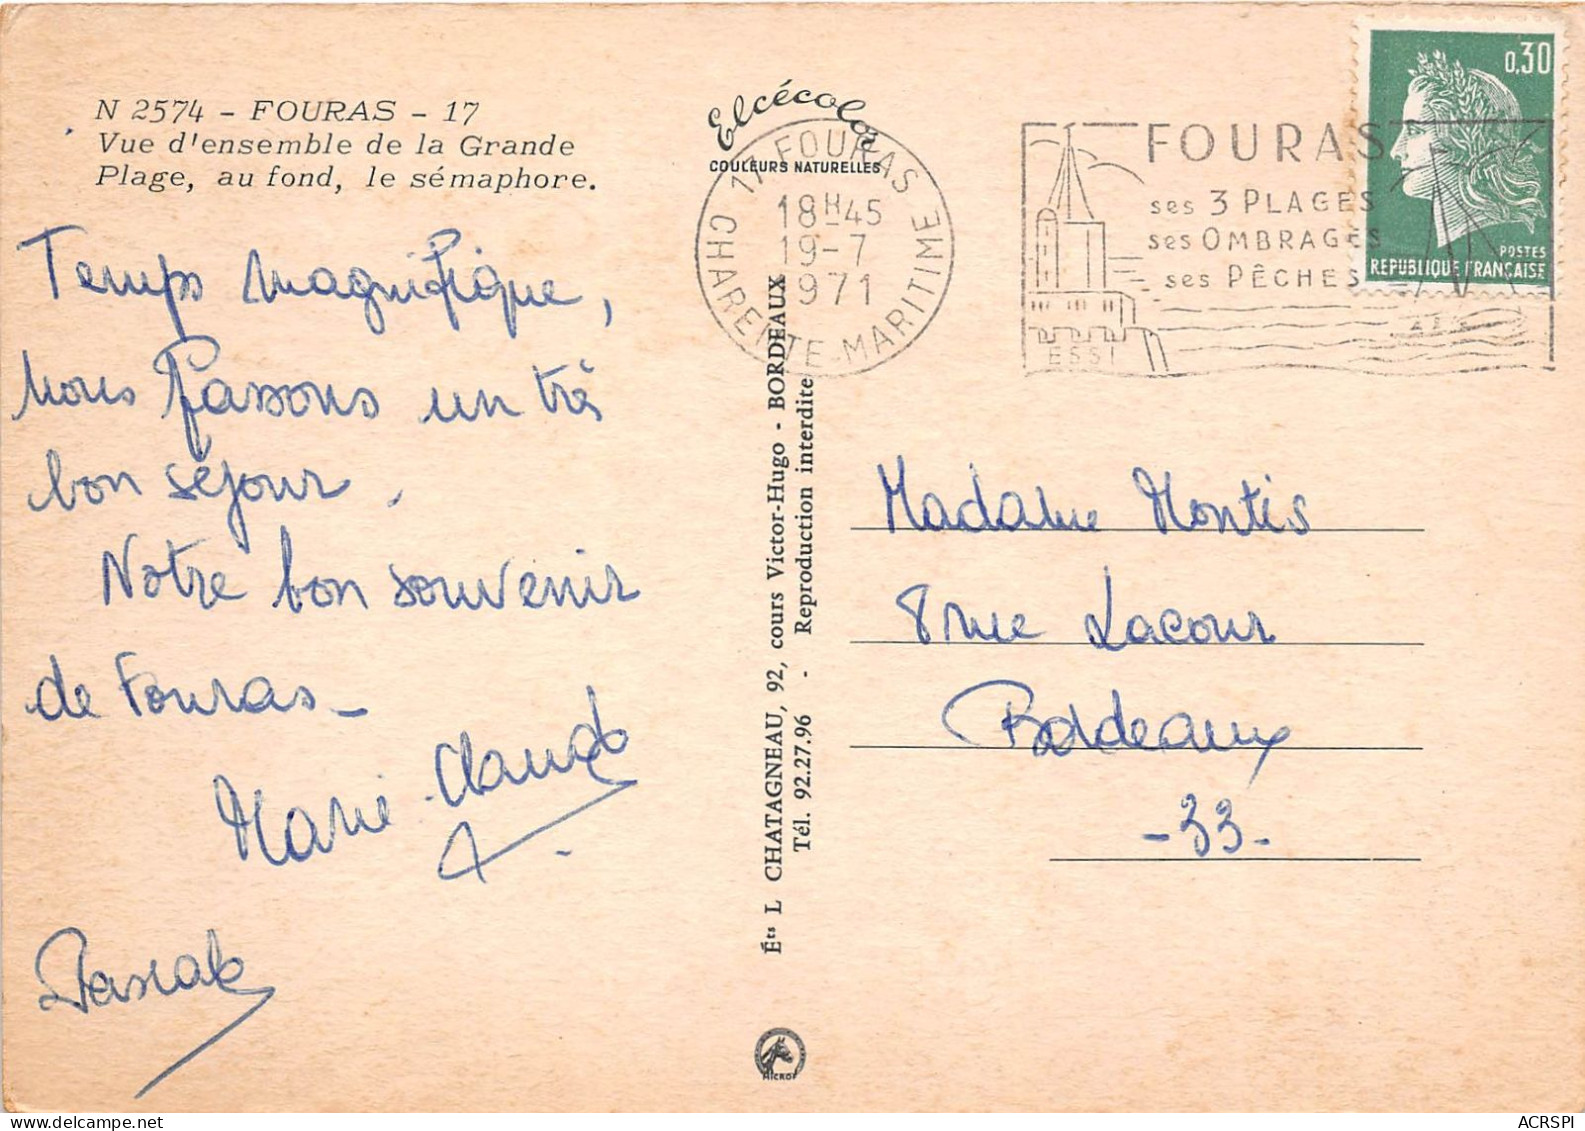 N 2574 - FOURAS - 17
Vue d'ensemble de la Grande
Plage, au fond, le sémaphore.
Temps magnifique,
nous passons un très
bon séjour.
Notre bon souvenir
de Fouras_
Marie-Claude
Pascale
Elcécolor
COULEURS NATURELLES
17 FOURAS
18H45
19-7
1971
CHARENTE-MARITIME
FOURAS
ses 3 PLAGES
ses OMBRAGES
ses PÊCHES
ESSI
0,30
POSTES
REPUBLIQUE FRANÇAISE
Éts L CHATAGNEAU, 92, cours Victor-Hugo - BORDEAUX
Tél. 92.27.96 - Reproduction interdite
Madame Montis
8 rue Lacour
Bordeaux
-33-
MICROF
ACRSPI